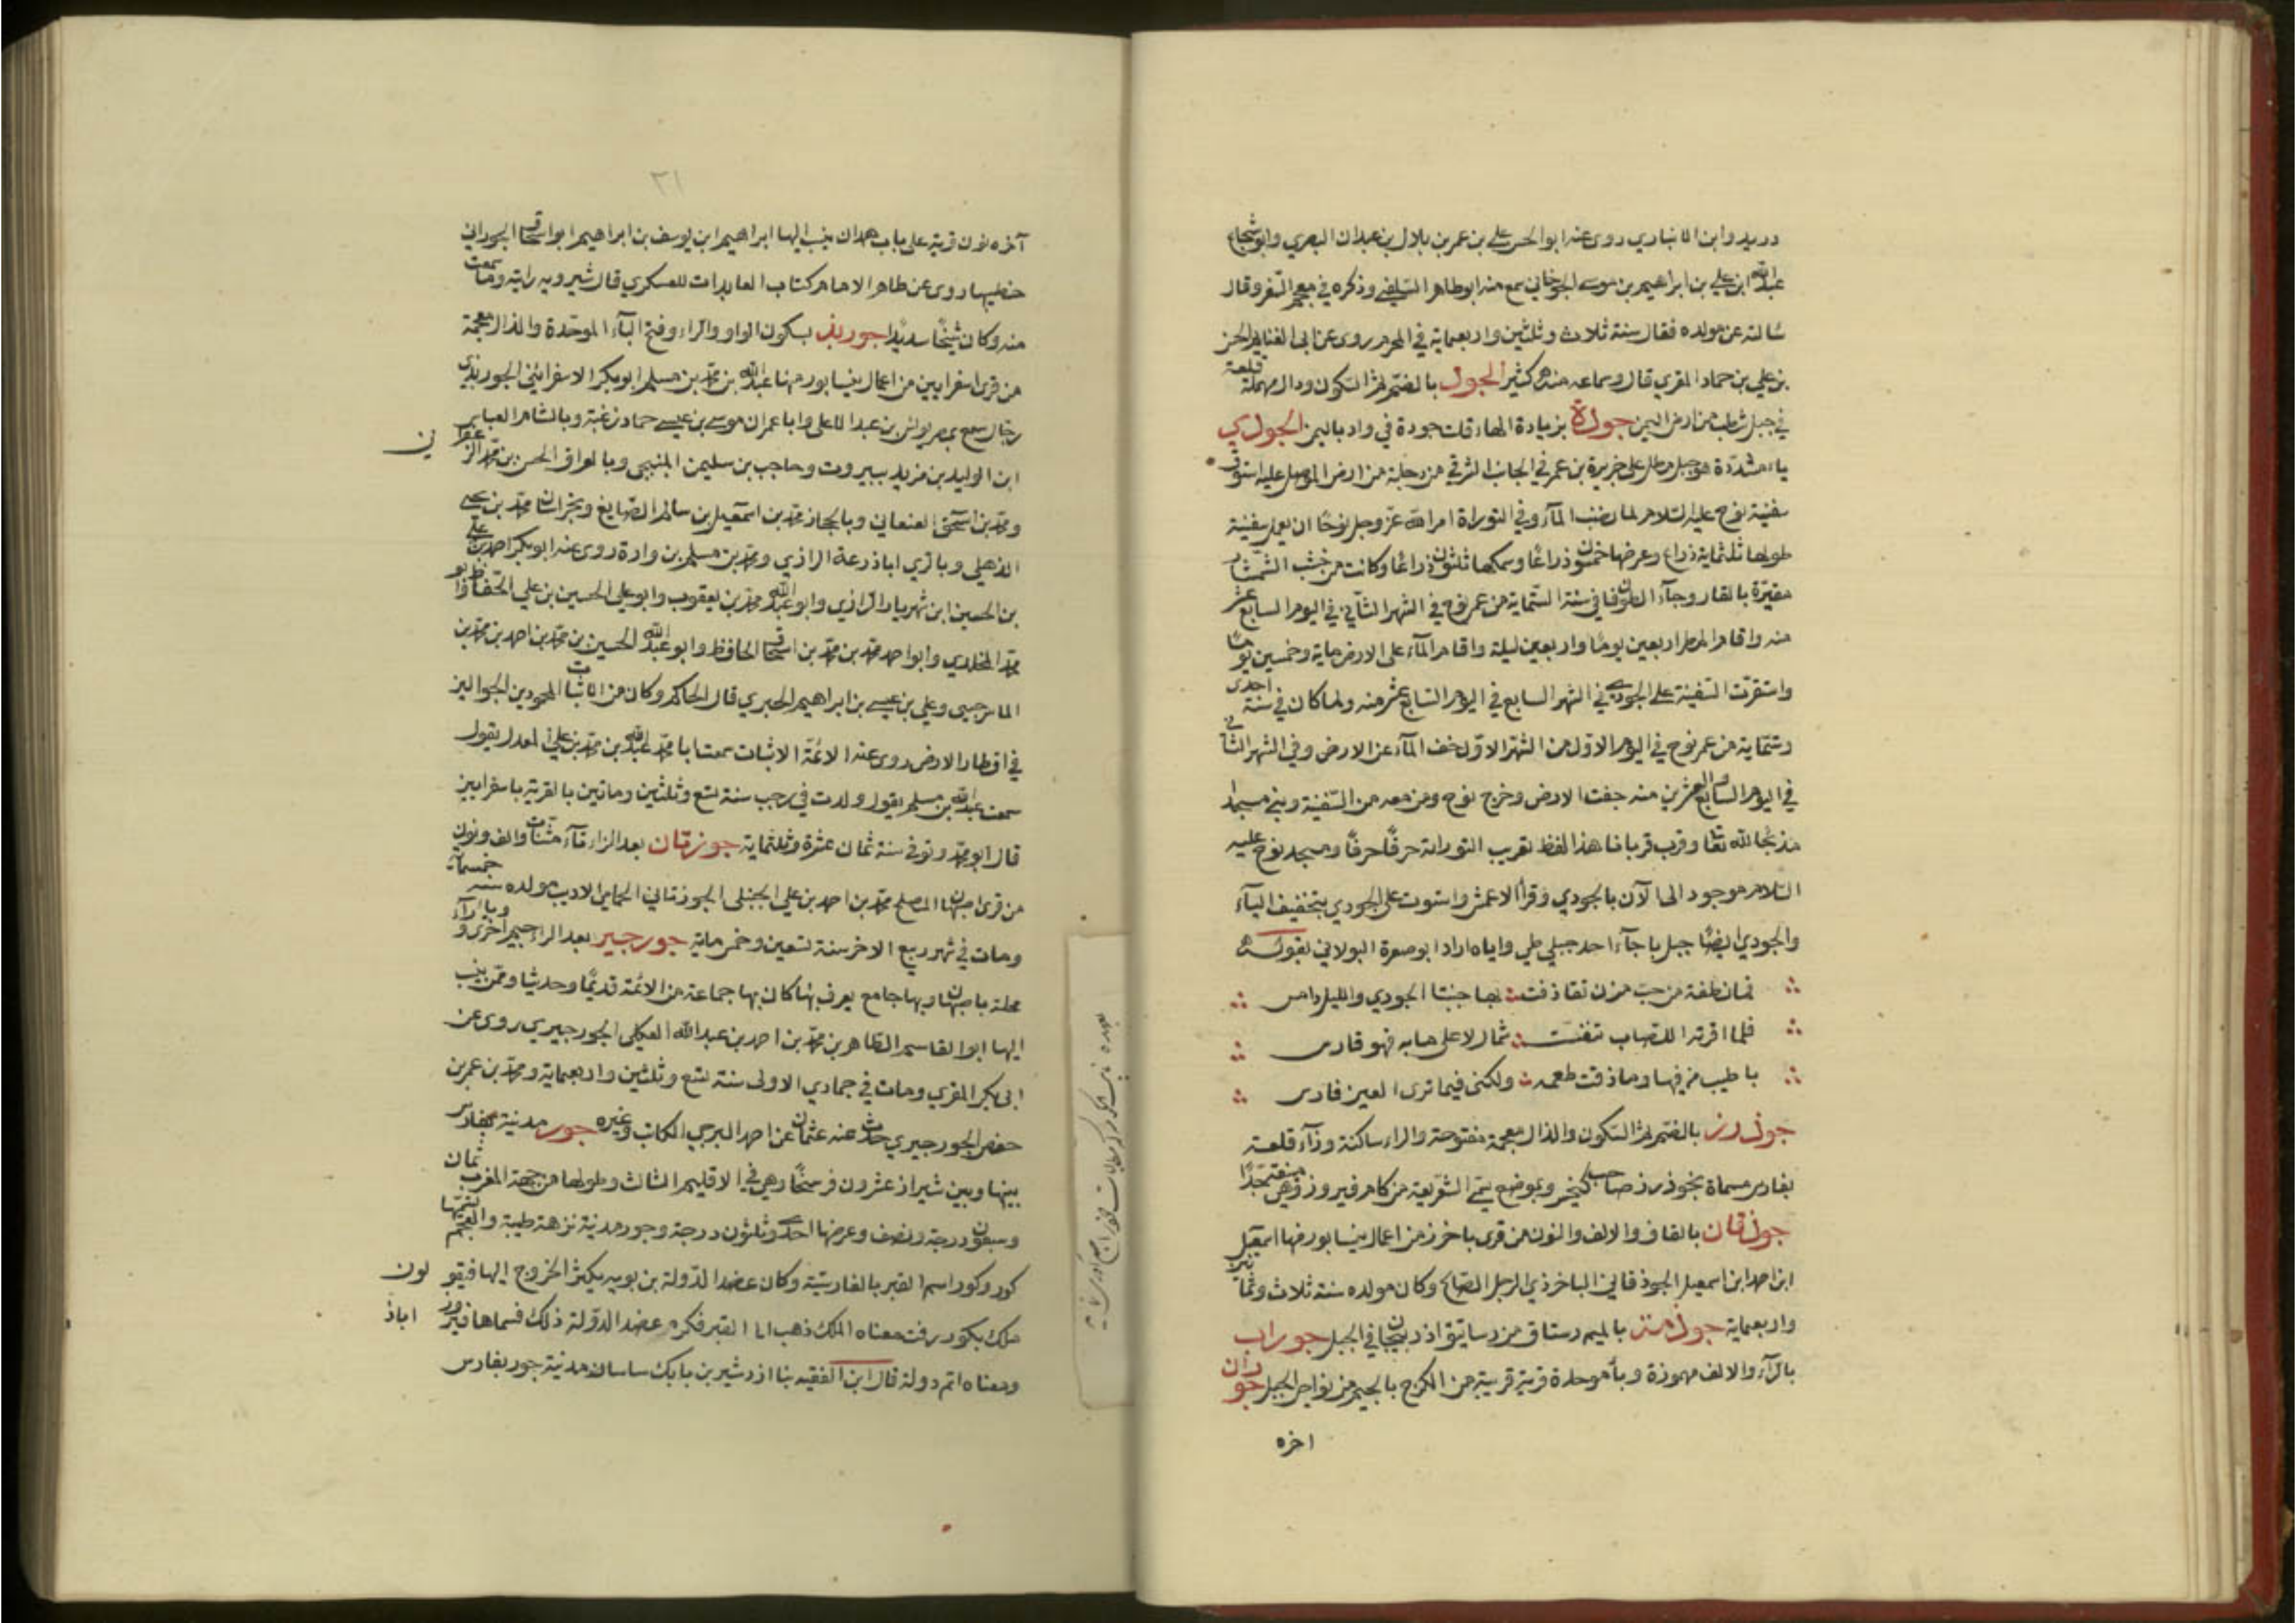 دريد وابن الانباري روى عنه ابو الحسن علي بن عمر بن بلال بن عبدان البصري وابو شجاع
عبد الله ابن علي بن ابراهيم بن موسى الجوخاني سمع منه ابو طاهر السلفي وذكره في معجم السفر وقال
سألته عن مولده فقال سنة ثلاث وثلثين واربعماية في المحرم روى عن ابي الغنايم الحسن
بن علي بن حماد المقري قال وسماعه منه كثير الجود بالضم ثم السكون ودال مهملة قلعة
في جبل شطب من ارض اليمن جودة بزيادة الهاء قلت جودة في واد باليمن الجودي
ياء مشددة هو جبل مطل على جزيرة بن عمر في الجانب الشرقي من دجلة من ارض الموصل عليه استوت
سفينة نوح عليه السلام لما نضب المآء وفي التوراة امر الله عز وجل نوحًا ان يعمل سفينة
طولها ثلثماية ذراع وعرضها خمسون ذراعًا وسمكها ثلثون ذراعًا وكانت من خشب الشمشار
مقيرة بالقار وجآء الطوفان في سنة الستماية من عمر نوح في الشهر الثاني في اليوم السابع عشر
منه واقام المطر اربعين يومًا واربعين ليلة واقام المآء على الارض ماية وخمسين يومًا
واستقرت السفينة على الجودي في الشهر السابع في اليوم السابع عشر منه ولما كان في سنة احدى
وستماية من عمر نوح في اليوم الاول من الشهر الاول خف المآء عن الارض وفي الشهر الثاني
في اليوم السابع والعشرين منه جفت الارض وخرج نوح ومن معه من السفينة وبنى مسجدا
مذبحا لله تعا وقرب قربانا هذا لفظ تعريب التوراة حرفًا حرفًا ومسجد نوح عليه
السلام موجود الى الآن بالجودي وقرأ الاعمش واستوت على الجودي بتخفيف اليآء
والجودي ايضًا جبل باجآء احد جبلي طي واياه اراد ابو صعترة البولاني بقوله
فما نطفة من حب مزن تقاذفت بها جنبتا الجودي والليل دامس
فلما اقرته اللصاب تنفست شمال لاعلى مابه فهو قارس
باطيب من فيها وما ذقت طعمه ولكنى فيما ترى العين فارس
جوذرز بالضم ثم السكون والذال معجمة مفتوحة والراء ساكنة وزآء قلعة
بفارس مسماة بجوذرز صاحب كيخسرو بموضع يسمى الشريعة من كام فيروز وهي منيعة جدًا
جوذقان بالقاف والالف والنون من قرى باخرز من اعمال نيسابور منها اسمعيل
ابن احمد ابن اسمعيل الجوذقاني الباخرذي الرجل الصالح وكان مولده سنة ثلاث وثمانين
واربعماية جوذمة بالميم رستاق من رساتيق اذربيجان في الجبل جوراب
بالرآء والالف مهموزة وبآ موحدة قرية قريبة من الكرج بالجيم من نواحي الجبل جوران
اخره
٣١
آخره نون قرية على باب همدان ينسب اليها ابراهيم ابن يوسف بن ابراهيم ابو اسحاق الجوراني
خطيبها روى عن طاهر الامام كتاب العابدات للعسكري قال شيرويه رايته وما سمعت
منه وكان شيخًا سديدًا جوربذ بسكون الواو والراء وفتح البآء الموحدة والذال معجمة
من قرى اسفرايين من اعمال نيسابور منها عبد الله بن محمد بن مسلم ابو بكر الاسفرايني الجوربذي
رحال سمع بمصر يونس بن عبد الاعلى وابا عمران موسى بن عيسى حماد زغبة وبالشام العباس
ابن الوليد بن مزيد ببيروت وحاجب بن سليمن المنبجي وبالعراق الحسن بن محمد الزعفرا ني
ومحمد بن اسحق الصنعاني وبالحجاز محمد بن اسمعيل بن سالم الصايغ وبخراسان محمد بن يحيى
الذهلي وبالري ابا ذرعة الرازي ومحمد بن مسلم بن وارة روى عنه ابو بكر احمد بن علي
بن الحسين ابن شهريار الرازي وابو عبد الله محمد بن يعقوب وابو علي الحسين بن علي الحفاظ وابو
محمد المخلدي وابو احمد محمد بن محمد بن اسحاق الحافظ وابو عبد الله الحسين بن محمد بن احمد بن محمد بن
الماسرجسي وعلي بن عيسى بن ابراهيم الحيري قال الحاكم وكان من الاثبات المجودين الجوالين
في اقطار الارض روى عنه الائمة الاثبات سمعت ابا محمد عبد الله بن محمد بن علي المعدل يقول
سمعت عبد الله بن مسلم يقول ولدت في رجب سنة تسع وثلثين وماتين بالقرية باسفرايين
قال ابو محمد وتوفي سنة ثمان عشرة وثلثماية جوزقان بعد الزاء تآء مثناة والف ونون
من قرى اصبهان المصلح محمد بن احمد بن علي الحنبلي الجوزتاني الحمامي الاديب مولده سنة خمسماية
ومات في شهر ربيع الاخر سنة تسعين وخمس ماية جورجير بعد الراء جيم اخرى ويا ورآء
محلة باصبهان وبها جامع يعرف بها كان بها جماعة من الائمة قديمًا وحديثا وممن ينسب
اليها ابو القاسم الطاهر بن محمد بن احمد بن عبد الله العكلي الجورجيري روى عن
ابي بكر المقري ومات في جمادي الاولى سنة تسع وثلثين واربعماية ومحمد بن عمر بن
حفص الجورجيري حدث عنه عثمان عن احمد البرجي الكاتب وغيره جور مدينة بفارس
بينها وبين شيراز عشرون فرسخًا وهي في الاقليم الثالث وطولها من جهة المغرب ثمان
وسبعون درجة ونصف وعرضها احدى وثلثون درجة وجور مدينة نزهة طيبة والعجم تسميها
كور وكور اسم القبر بالفارسية وكان عضد الدولة بن بويه يكثر الخروج اليها فيقو لون
ملك بكور رفت معناه الملك ذهب الى القبر فكره عضد الدولة ذلك فسماها فيروز اباذ
ومعناه اتم دولة قال ابن الفقيه بنا اردشير بن بابك ساسان مدينة جور بفارس